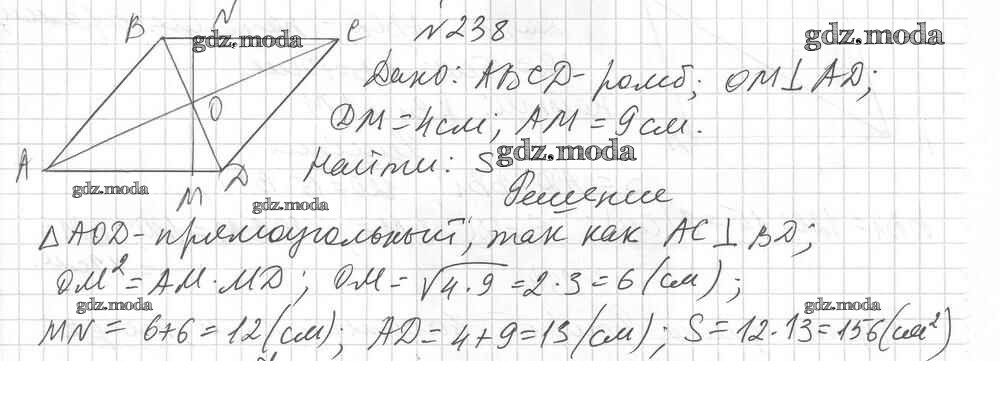 N238
B N C
A O M D
Дано: ABCD - ромб; OM⊥AD;
DM = 4 см; AM = 9 см.
Найти: S
Решение
△AOD - прямоугольный, так как AC⊥BD;
OM² = AM · MD; OM = √4·9 = 2·3 = 6 (см);
MN = 6+6 = 12 (см); AD = 4+9 = 13 (см); S = 12·13 = 156 (см²)
gdz.moda
gdz.moda
gdz.moda
gdz.moda
gdz.moda
gdz.moda
gdz.moda